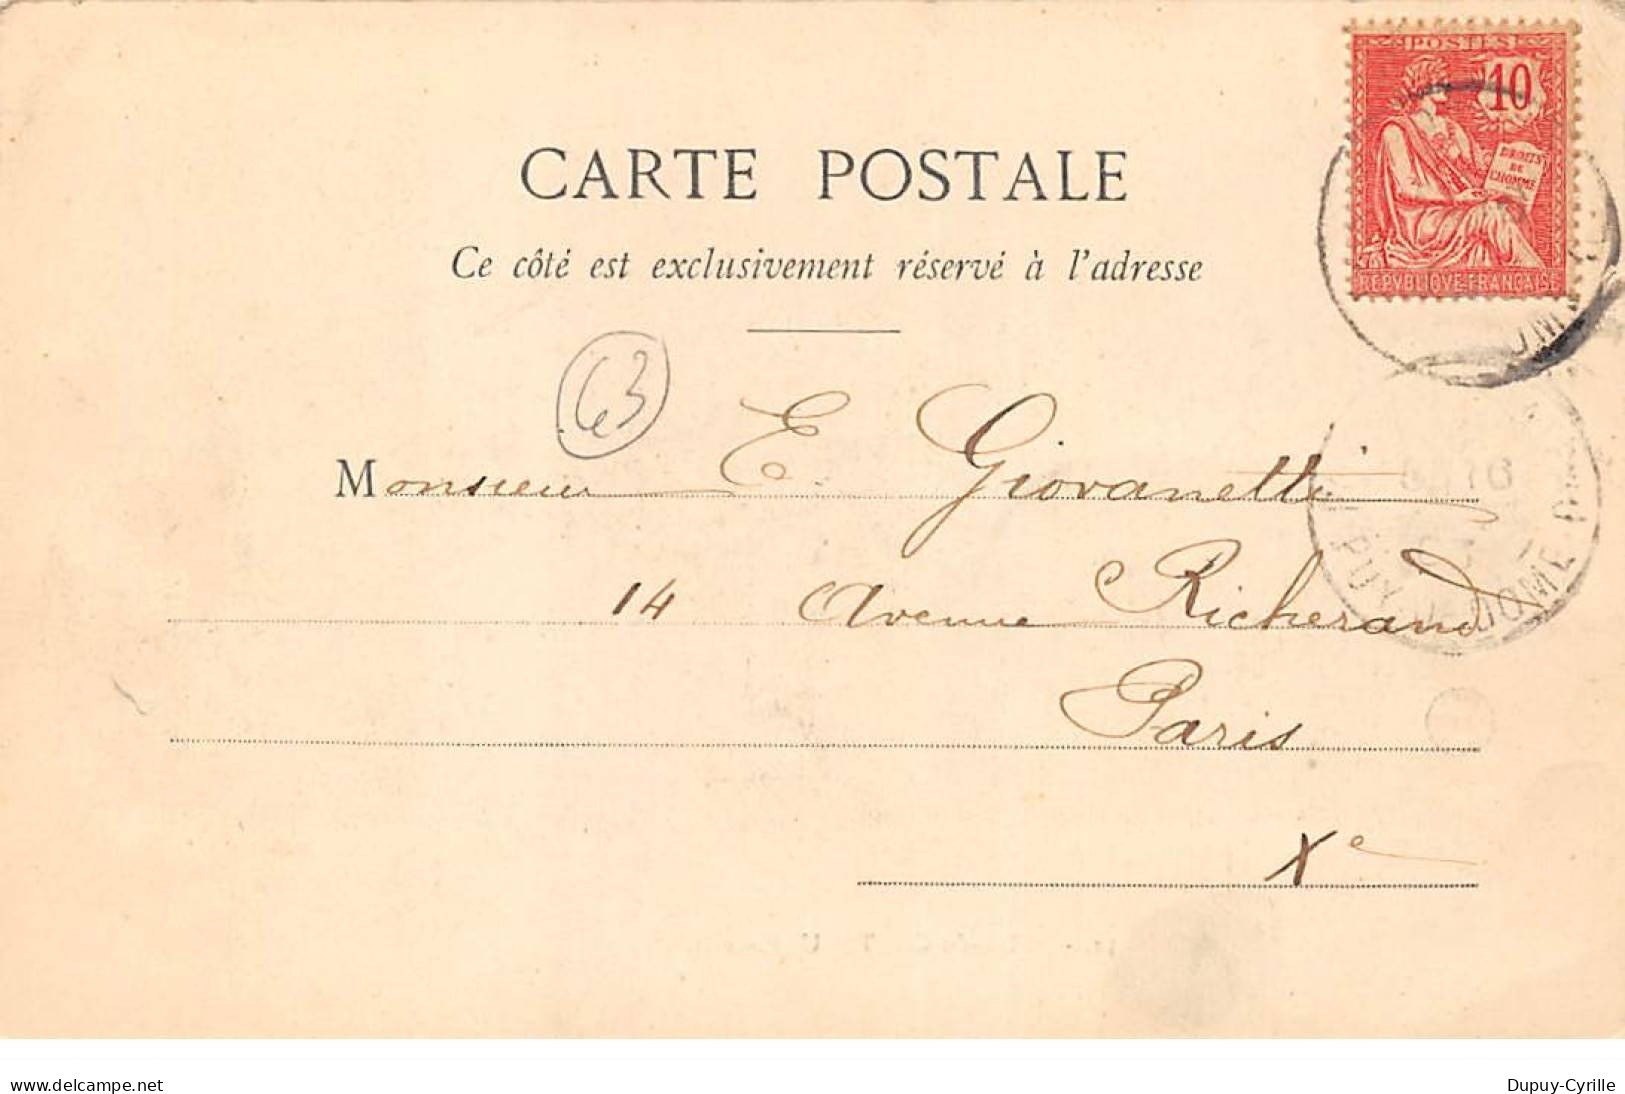 POSTES
10
DROITS
DE
L'HOMME
REPVBLIQVE FRANÇAISE
CARTE POSTALE
Ce côté est exclusivement réservé à l'adresse
63
Monsieur E. Giovanetti
14 Avenue Richerand
Paris
Xe
PUY-DE-DOME
www.delcampe.net
Dupuy-Cyrille